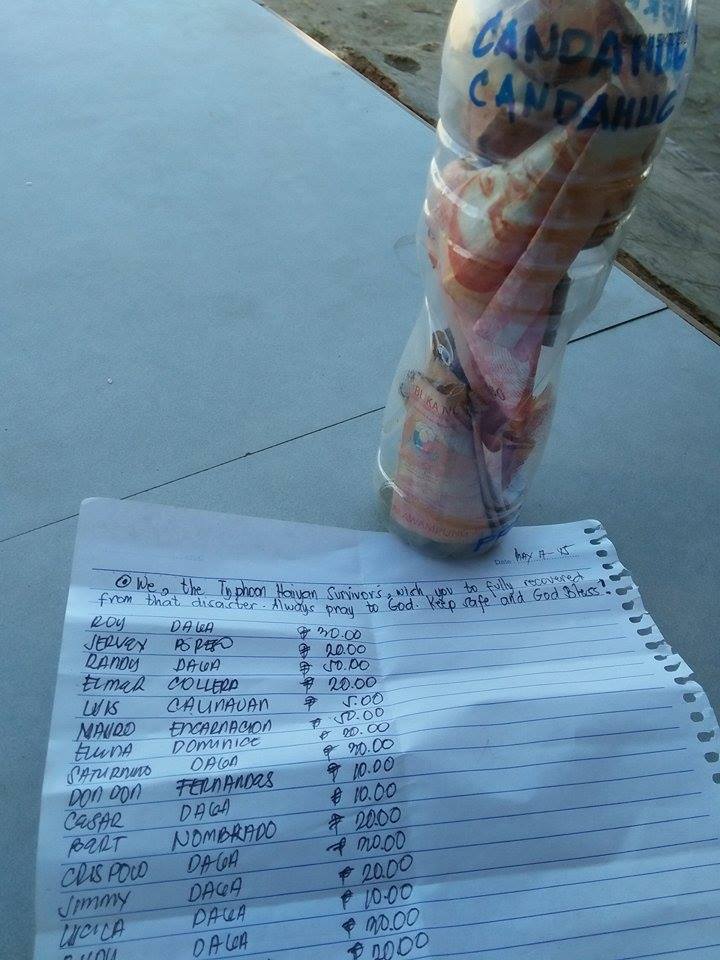 CANDAHUG
CANDAHUG
Date May 17-15
We, the Typhoon Haiyan Survivors, wish you to fully recovered
from that disaster. Always pray to God. Keep safe and God Bless!
ROY DAGA ₱ 30.00
JERVEY ₱ 20.00
RANDY DAGA ₱ 50.00
ELMER COLLERA ₱ 20.00
LUIS CALINAUAN ₱ 5.00
MAURO ENCARNACION ₱ 50.00
ELENA DOMINICE ₱ 20.00
SATURNINO DAGA ₱ 30.00
DON DON FERNANDES ₱ 10.00
CESAR DAGA ₱ 10.00
BERT NOMBRADO ₱ 20.00
CRISPOLO DAGA ₱ 20.00
JIMMY DAGA ₱ 20.00
LUCILA DAGA ₱ 10.00
DAGA ₱ 20.00
₱ 20.00